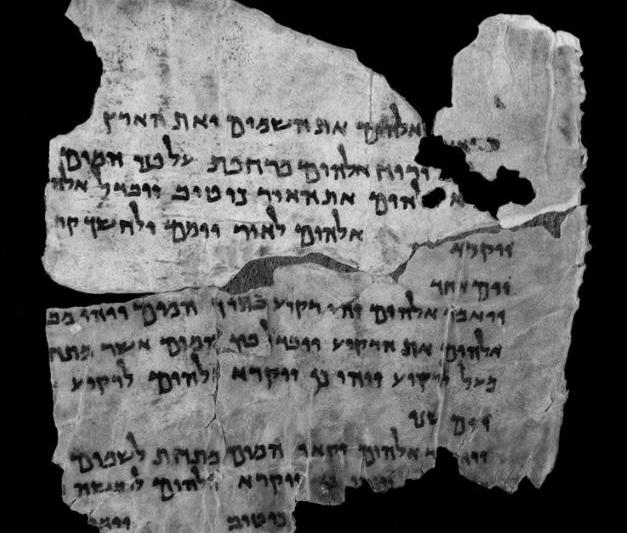 אלהים את השמים ואת הארץ
ורוח אלהים מרחפת על פני המים
אלהים את האור כי טוב ויבדל אלהי
אלהים לאור יומם ולחשך קר
ויקרא
יום אחד
ויאמר אלהים יהי רקיע בתוך המים ויהי מב
אלהים את הרקיע ויבדל בין המים אשר מתח
מעל לרקיע ויהי כן ויקרא אלהים לרקיע
יום שני
אלהים יקאו המים מתחת לשמים
כן ויקרא אלהים ליבשה
כי טוב